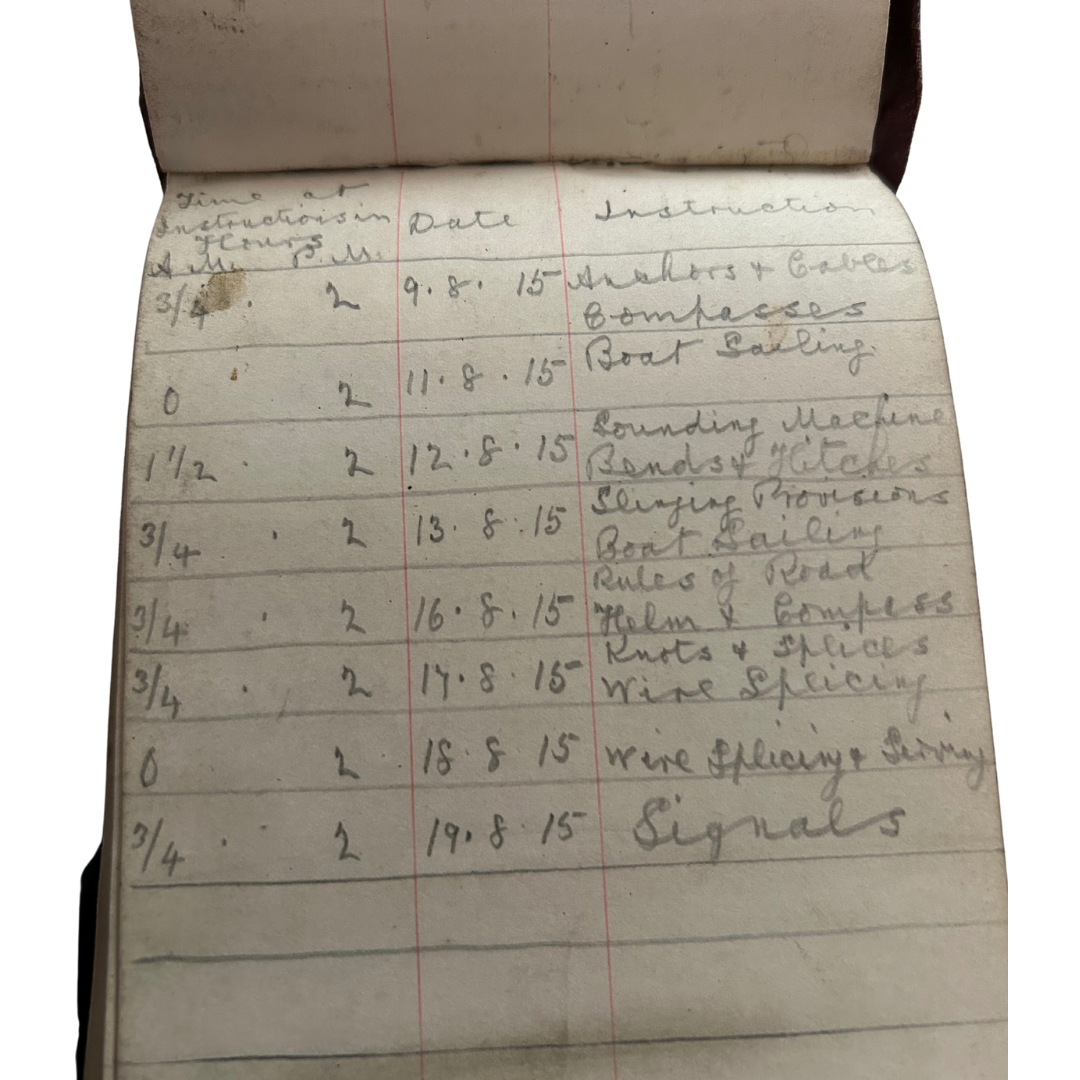 Time at
Instructions in
Hours
A.M. P.M.
Date
Instruction
3/4 2 9.8.15 Anchors & Cables
Compasses
Boat Sailing.
0 2 11.8.15
Sounding Machine
1 1/2 2 12.8.15 Bends & Hitches
Slinging Provisions
3/4 2 13.8.15 Boat Sailing
Rules of Road
3/4 2 16.8.15 Helm & Compass
Knots & Splices
3/4 2 17.8.15 Wire Splicing
0 2 18.8.15 Wire Splicing & Serving
3/4 2 19.8.15 Signals